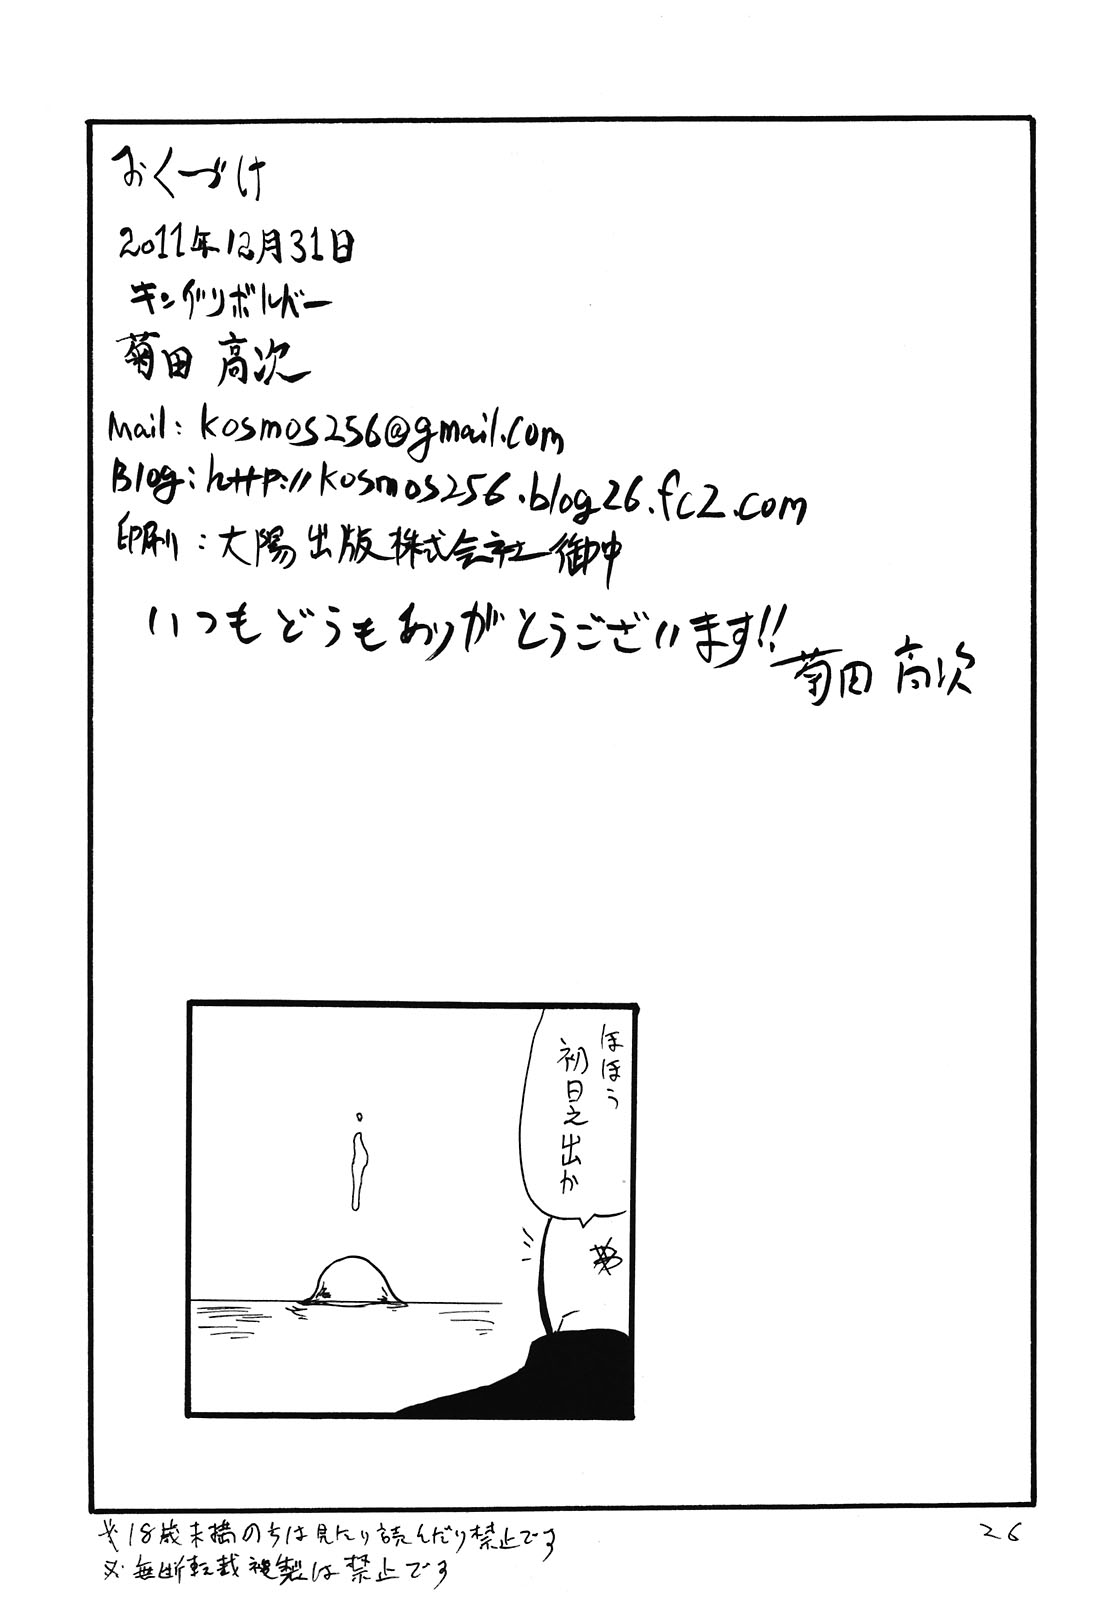 おくづけ
2011年12月31日
キングリボルバー
菊田 高次
Mail: kosmos256@gmail.com
Blog: http://kosmos256.blog26.fc2.com
印刷:大陽出版株式会社御中
いつもどうもありがとうございます!!
菊田 高次
ほほう
初日之出か
※18歳未満のちは見たり読んだり禁止です
※無断転載複製は禁止です
26